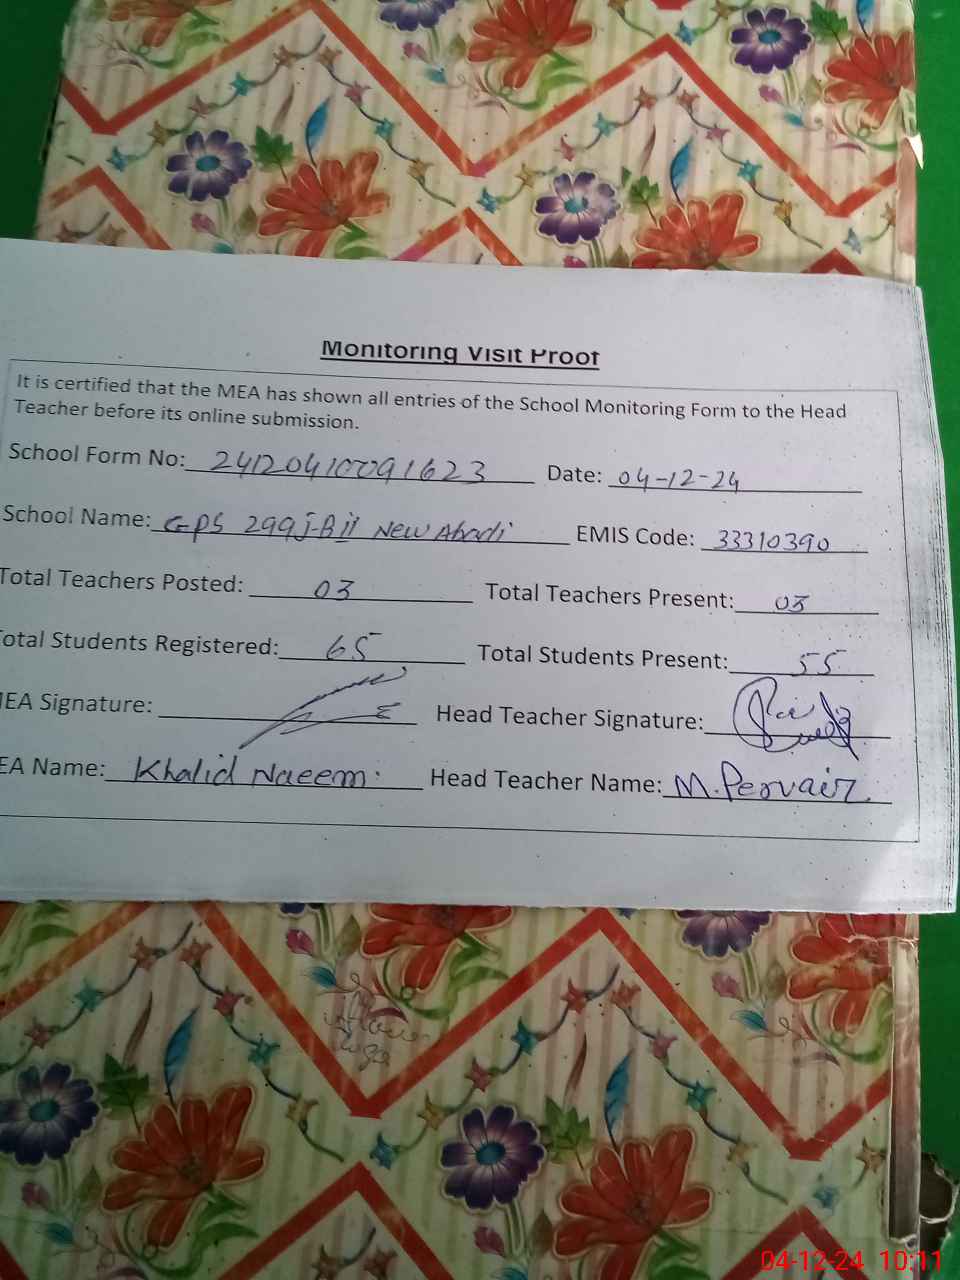 Monitoring Visit Proof
It is certified that the MEA has shown all entries of the School Monitoring Form to the Head
Teacher before its online submission.
School Form No: 24120410091623 Date: 04-12-24
School Name: GPS 299 J-B II New Abadi EMIS Code: 33310390
Total Teachers Posted: 03 Total Teachers Present: 03
otal Students Registered: 65 Total Students Present: 55
EA Signature: Head Teacher Signature:
EA Name: Khalid Naeem. Head Teacher Name: M. Pervaiz
04-12-24 10:11